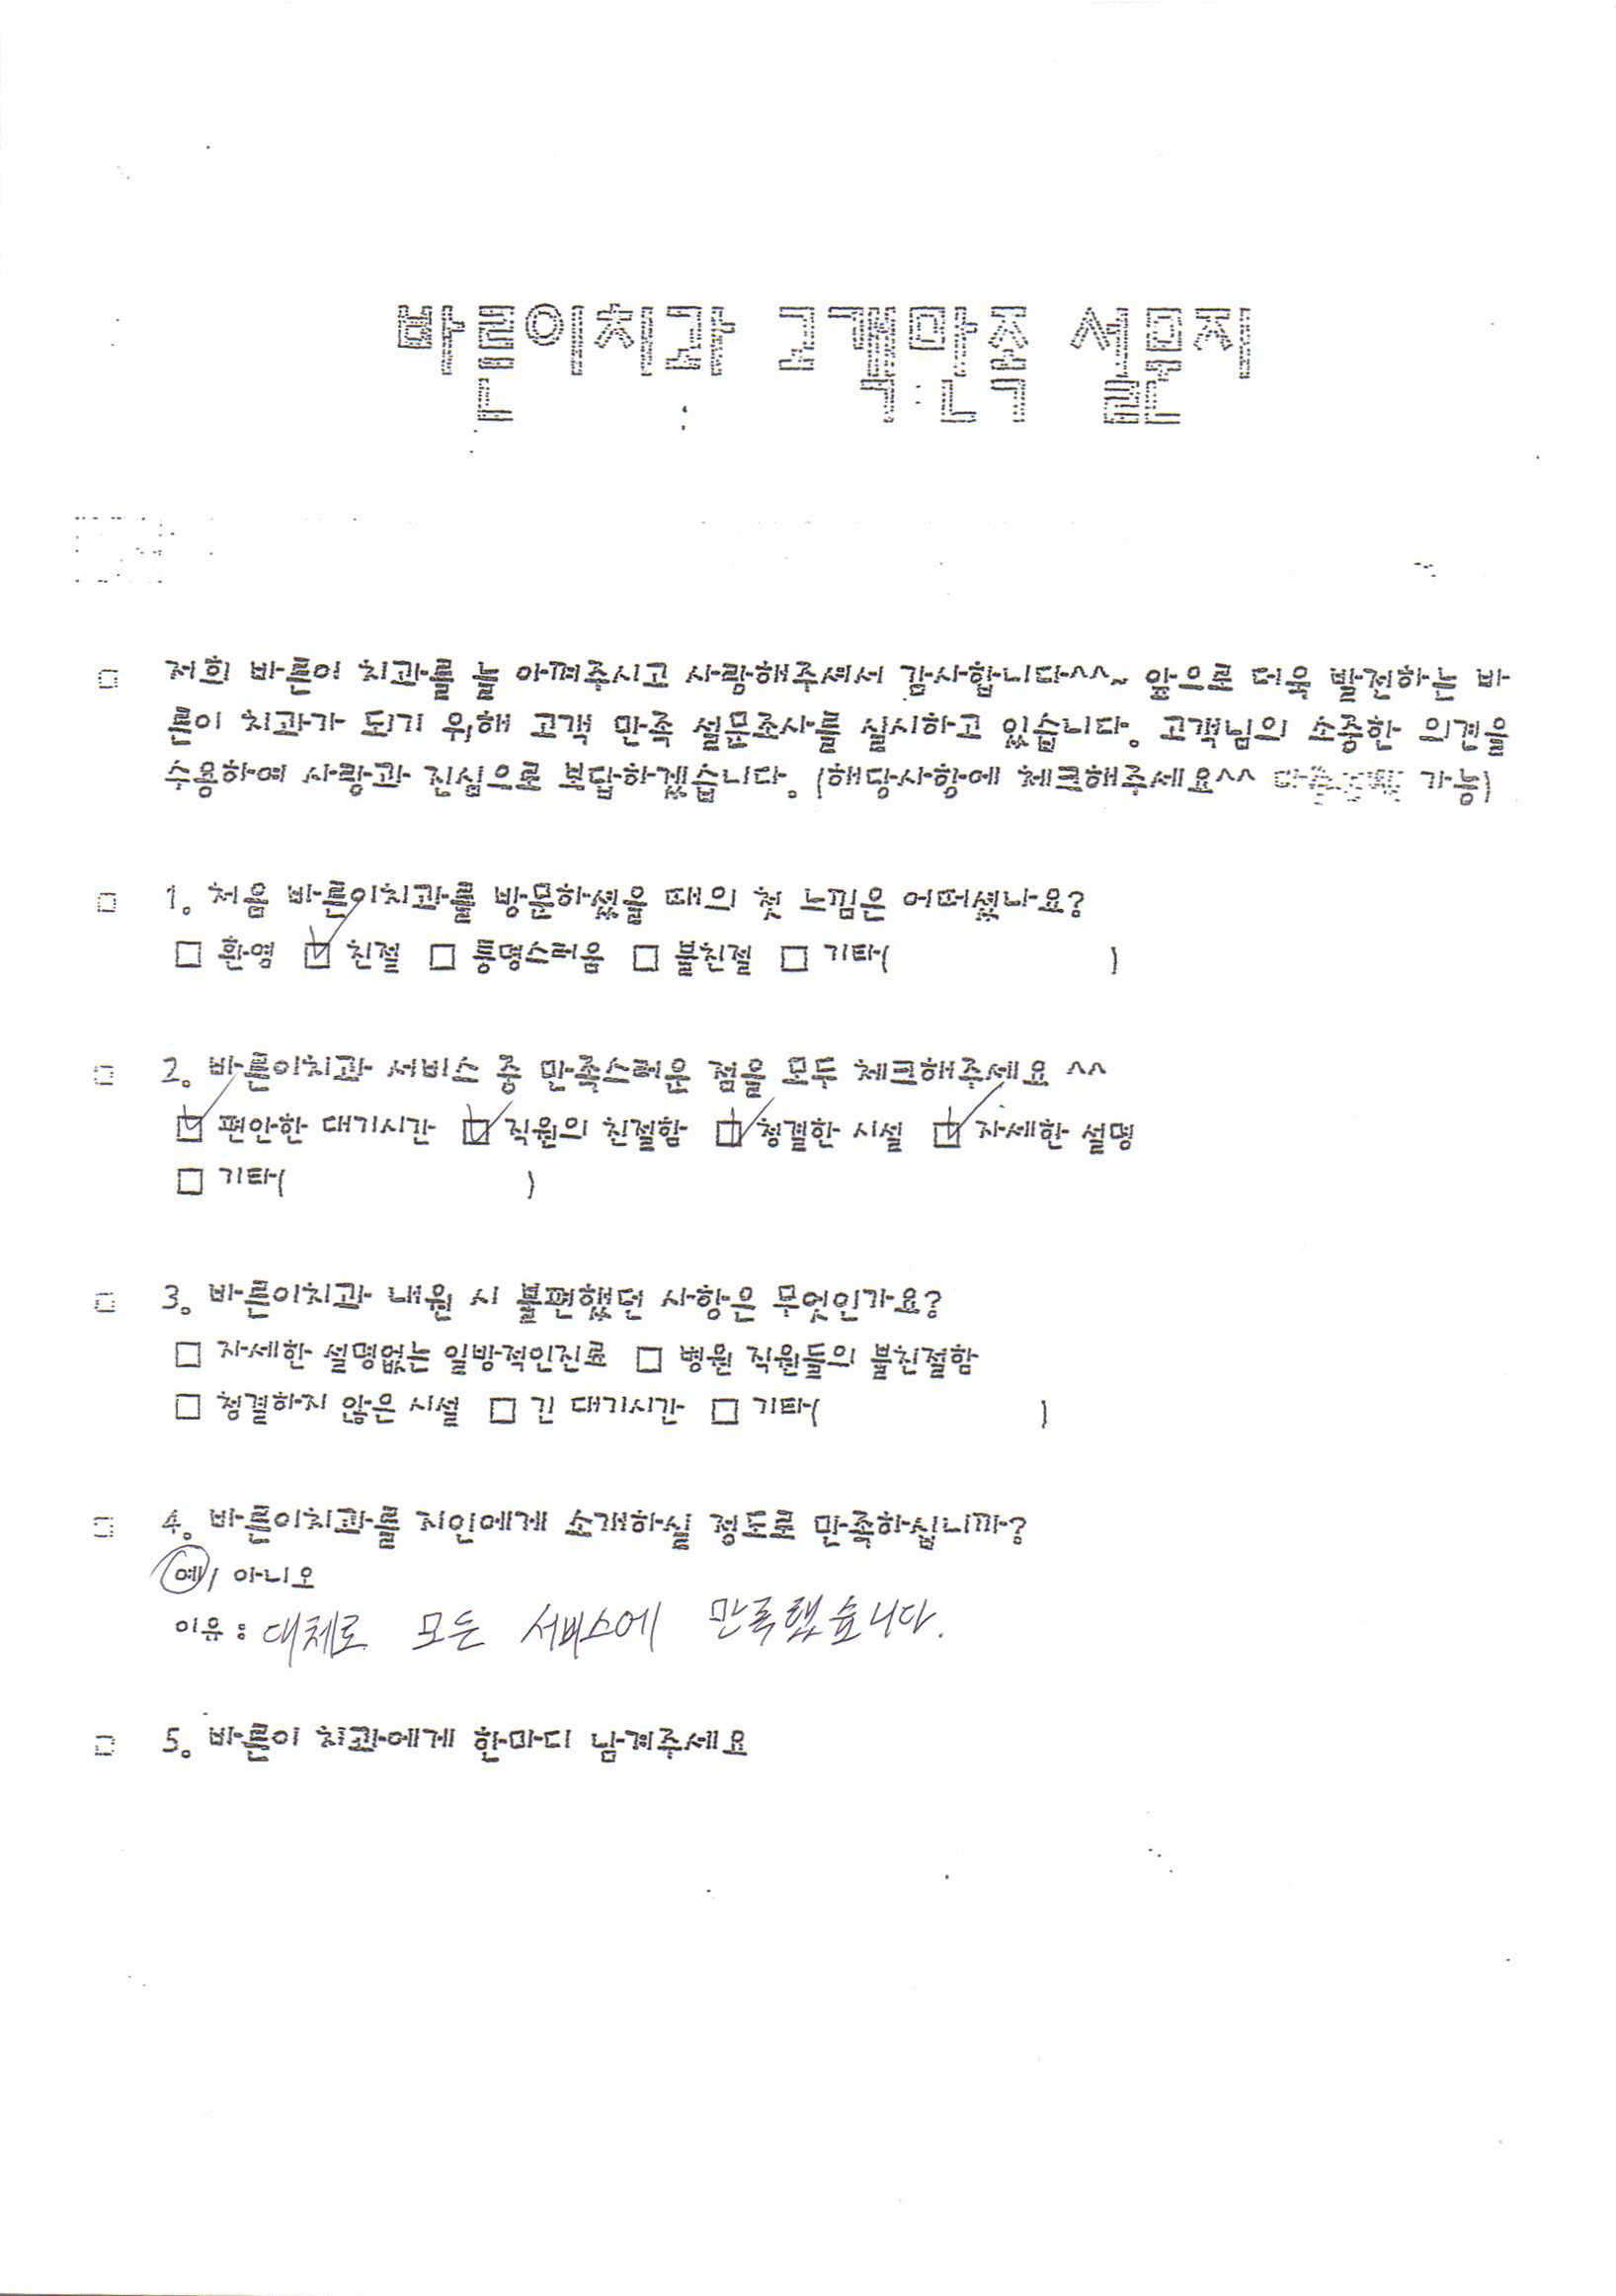 바른이치과 고객만족 설문지
저희 바른이 치과를 늘 아껴주시고 사랑해주셔서 감사합니다^^~ 앞으로 더욱 발전하는 바
른이 치과가 되기 위해 고객 만족 설문조사를 실시하고 있습니다. 고객님의 소중한 의견을
수용하여 사랑과 진심으로 보답하겠습니다. (해당사항에 체크해주세요^^ 가능)
□ 1. 처음 바른이치과를 방문하셨을 때의 첫 느낌은 어떠셨나요?
□ 환영 ☑ 친절 □ 퉁명스러움 □ 불친절 □ 기타( )
□ 2. 바른이치과 서비스 중 만족스러운 점을 모두 체크해주세요 ^^
☑ 편안한 대기시간 ☑ 직원의 친절함 ☑ 청결한 시설 ☑ 자세한 설명
□ 기타( )
□ 3. 바른이치과 내원 시 불편했던 사항은 무엇인가요?
□ 자세한 설명없는 일방적인진료 □ 병원 직원들의 불친절함
□ 청결하지 않은 시설 □ 긴 대기시간 □ 기타( )
□ 4. 바른이치과를 지인에게 소개하실 정도로 만족하십니까?
예/ 아니오
이유: 대체로 모든 서비스에 만족했습니다.
□ 5. 바른이 치과에게 한마디 남겨주세요